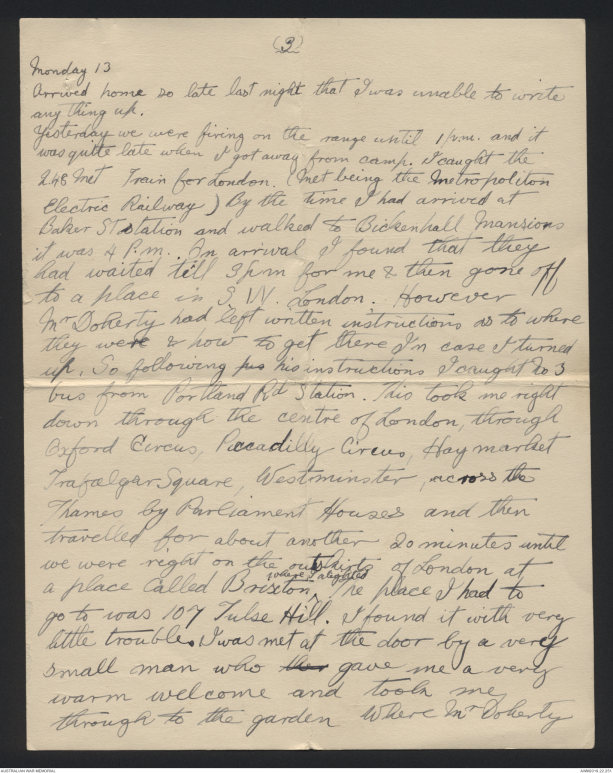 (3)
Monday 13
Arrived home so late last night that I was unable to write
any thing up.
Yesterday we were firing on the range until 1 p.m. and it
was quite late when I got away from camp. I caught the
2.48 Met Train for London. (Met being the Metropoliton
Electric Railway) By the time I had arrived at
Baker St station and walked to Bickenhall Mansions
it was 4 P.m.. On arrival I found that they
had waited till 3 pm for me & then gone off
to a place in S.W. London. However
Mr Doherty had left written instructions as to where
they were & how to get there In case I turned
up. So following his instructions I caught No 3
bus from Portland Rd Station. This took me right
down through the centre of London, through
Oxford Circus, Piccadilly Circus, Hay market
Trafalgar Square, Westminster, across the
Thames by Parliament Houses and then
travelled for about another 20 minutes until
we were right on the outskirts of London at
where I alighted
a place called Brixton. The place I had to
go to was 107 Tulse Hill. I found it with very
little trouble. I was met at the door by a very
small man who ther gave me a very
warm welcome and took me
through to the garden where Mr Doherty
AUSTRALIAN WAR MEMORIAL